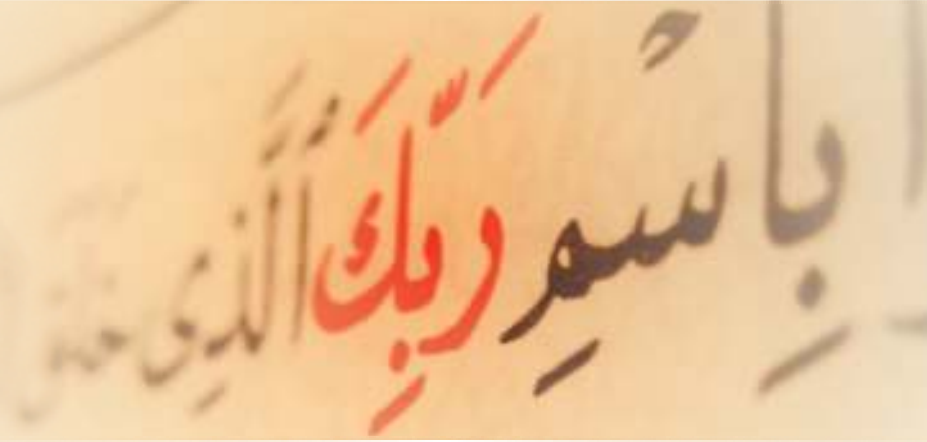 بِاسْمِ رَبِّكَ ٱلَّذِى خلق